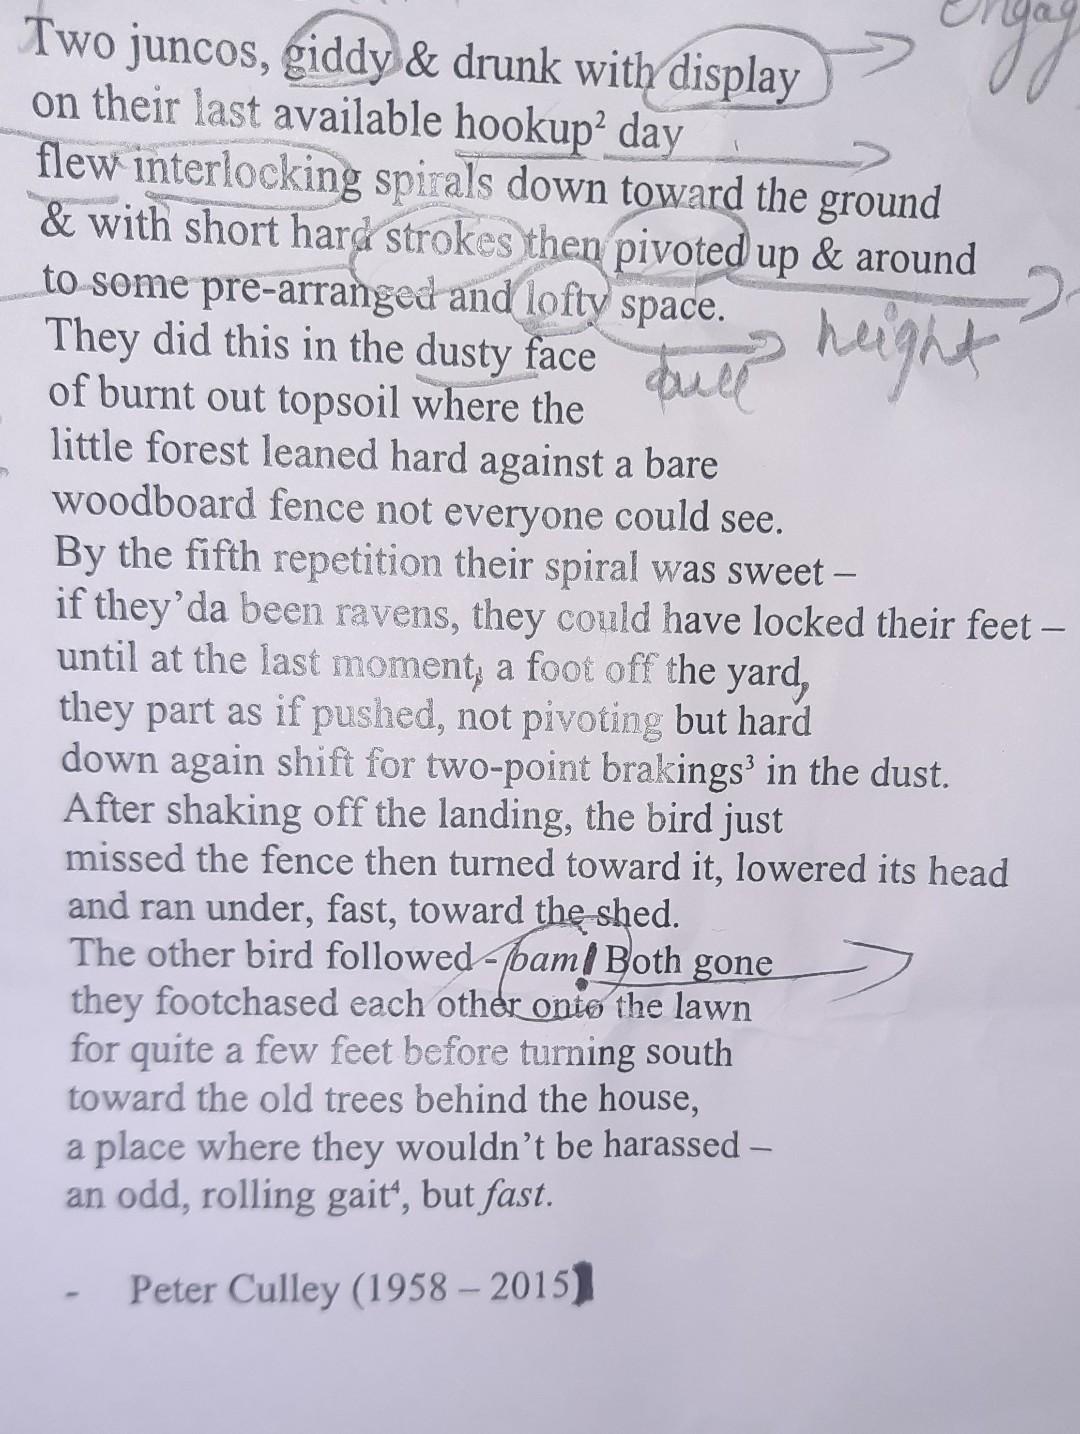 engag
Two juncos, giddy & drunk with display
on their last available hookup² day
flew interlocking spirals down toward the ground
& with short hard strokes then pivoted up & around
to some pre-arranged and lofty space.
height
They did this in the dusty face
dull
of burnt out topsoil where the
little forest leaned hard against a bare
woodboard fence not everyone could see.
By the fifth repetition their spiral was sweet –
if they'da been ravens, they could have locked their feet –
until at the last moment, a foot off the yard,
they part as if pushed, not pivoting but hard
down again shift for two-point brakings³ in the dust.
After shaking off the landing, the bird just
missed the fence then turned toward it, lowered its head
and ran under, fast, toward the shed.
The other bird followed - bam! Both gone
they footchased each other onto the lawn
for quite a few feet before turning south
toward the old trees behind the house,
a place where they wouldn't be harassed –
an odd, rolling gait⁴, but fast.
- Peter Culley (1958 – 2015)